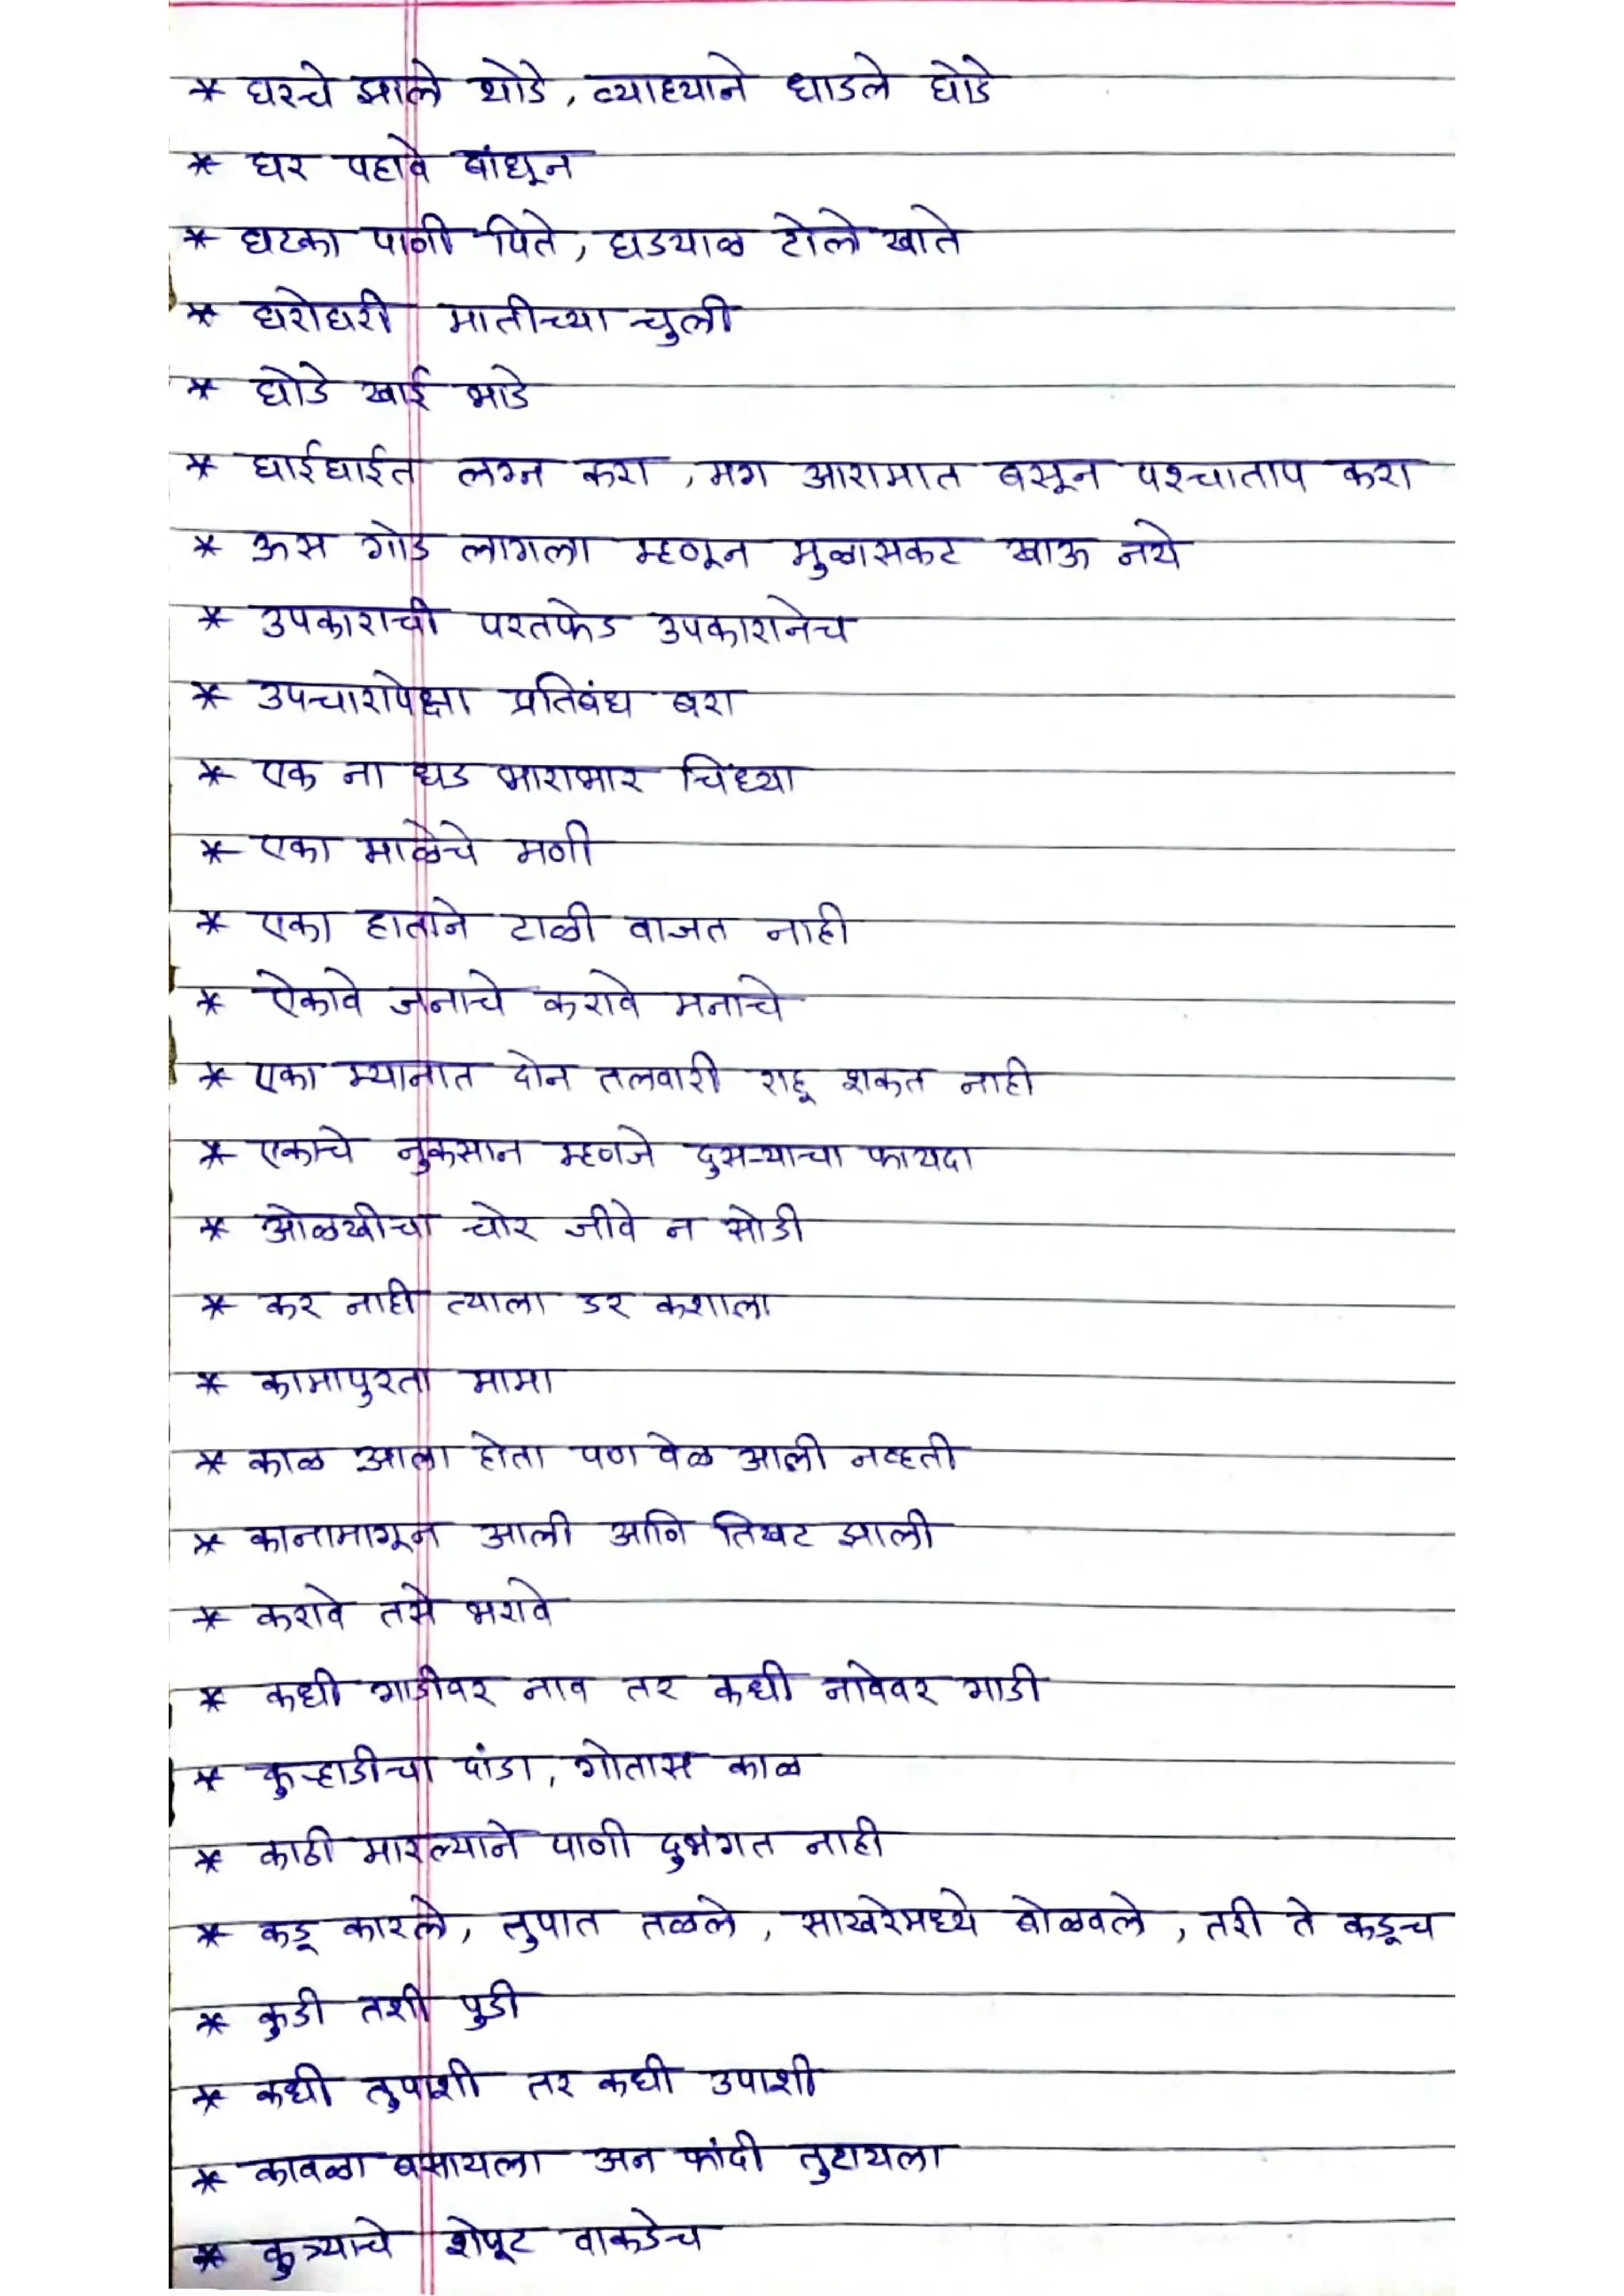 * घरचे झाले थोडे, व्याह्याने धाडले घोडे
* घर पहावे बांधून
* घटका पाणी पिते, घड्याळ टोले खाते
* घरोघरी मातीच्या चुली
* घोडे खाई भाडे
* घाईघाईत लग्न करा, मग आरामात बसून पश्चाताप करा
* ऊस गोड लागला म्हणून मुळासकट खाऊ नये
* उपकाराची परतफेड उपकारानेच
* उपचारापेक्षा प्रतिबंध बरा
* एक ना धड भाराभार चिंध्या
* एका माळेचे मणी
* एका हाताने टाळी वाजत नाही
* ऐकावे जनाचे करावे मनाचे
* एका म्यानात दोन तलवारी राहू शकत नाही
* एकाचे नुकसान म्हणजे दुसऱ्याचा फायदा
* ओळखीचा चोर जीवे न सोडी
* कर नाही त्याला डर कशाला
* कामापुरता मामा
* काळ आला होता पण वेळ आली नव्हती
* कानामागून आली आणि तिखट झाली
* करावे तसे भरावे
* कधी गाडीवर नाव तर कधी नावेवर गाडी
* कुऱ्हाडीचा दांडा, गोतास काळ
* काठी मारल्याने पाणी दुभंगत नाही
* कडू कारले, तुपात तळले, साखरेमध्ये घोळवले, तरी ते कडूच
* कुडी तशी पुडी
* कधी तुपाशी तर कधी उपाशी
* कावळा बसायला अन फांदी तुटायला
* कुत्र्याचे शेपूट वाकडेच